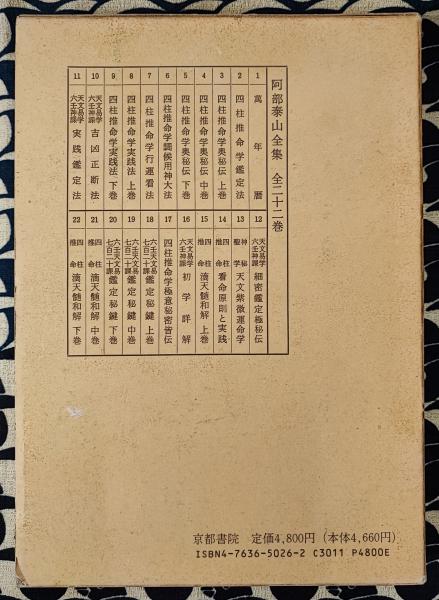 阿部泰山全集 全二十二巻
1 萬年暦
2 四柱推命学鑑定法
3 四柱推命学奥秘伝 上巻
4 四柱推命学奥秘伝 中巻
5 四柱推命学奥秘伝 下巻
6 四柱推命学調候用神大法
7 四柱推命学行運看法
8 四柱推命学実践法 上巻
9 四柱推命学実践法 下巻
10 天文易学六壬神課 吉凶正断法
11 天文易学六壬神課 実践鑑定法
12 天文易学六壬神課 細密鑑定極秘伝
13 神秘聖学 天文紫微運命学
14 四柱推命 看命原則と実践
15 四柱推命 滴天髄和解 上巻
16 天文易学六壬神課 初学詳解
17 四柱推命学極意秘密皆伝
18 六壬天文易七百二十課 鑑定秘鍵 上巻
19 六壬天文易七百二十課 鑑定秘鍵 中巻
20 六壬天文易七百二十課 鑑定秘鍵 下巻
21 四柱推命 滴天髄和解 中巻
22 四柱推命 滴天髄和解 下巻
京都書院 定価4,800円(本体4,660円)
ISBN4-7636-5026-2 C3011 P4800E